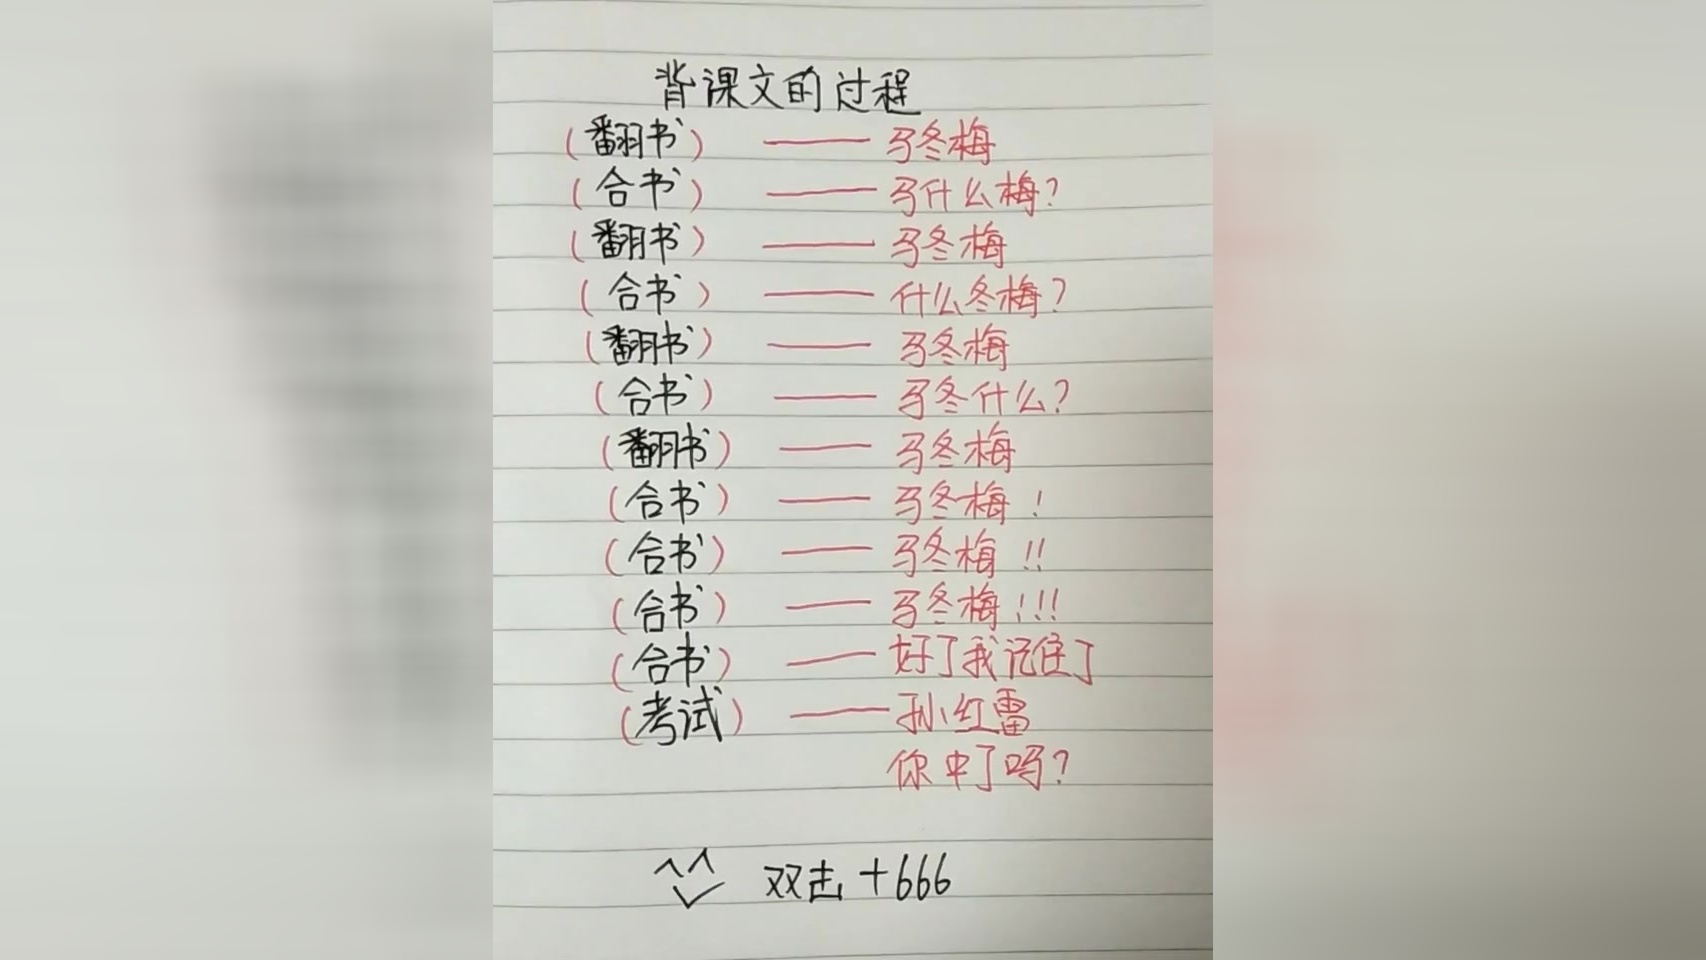 背课文的过程
(翻书) —— 马冬梅
(合书) —— 马什么梅?
(翻书) —— 马冬梅
(合书) —— 什么冬梅?
(翻书) —— 马冬梅
(合书) —— 马冬什么?
(翻书) —— 马冬梅
(合书) —— 马冬梅!
(合书) —— 马冬梅!!
(合书) —— 马冬梅!!!
(合书) —— 好了我记住了
(考试) —— 孙红雷
你中了吗?
双击+666